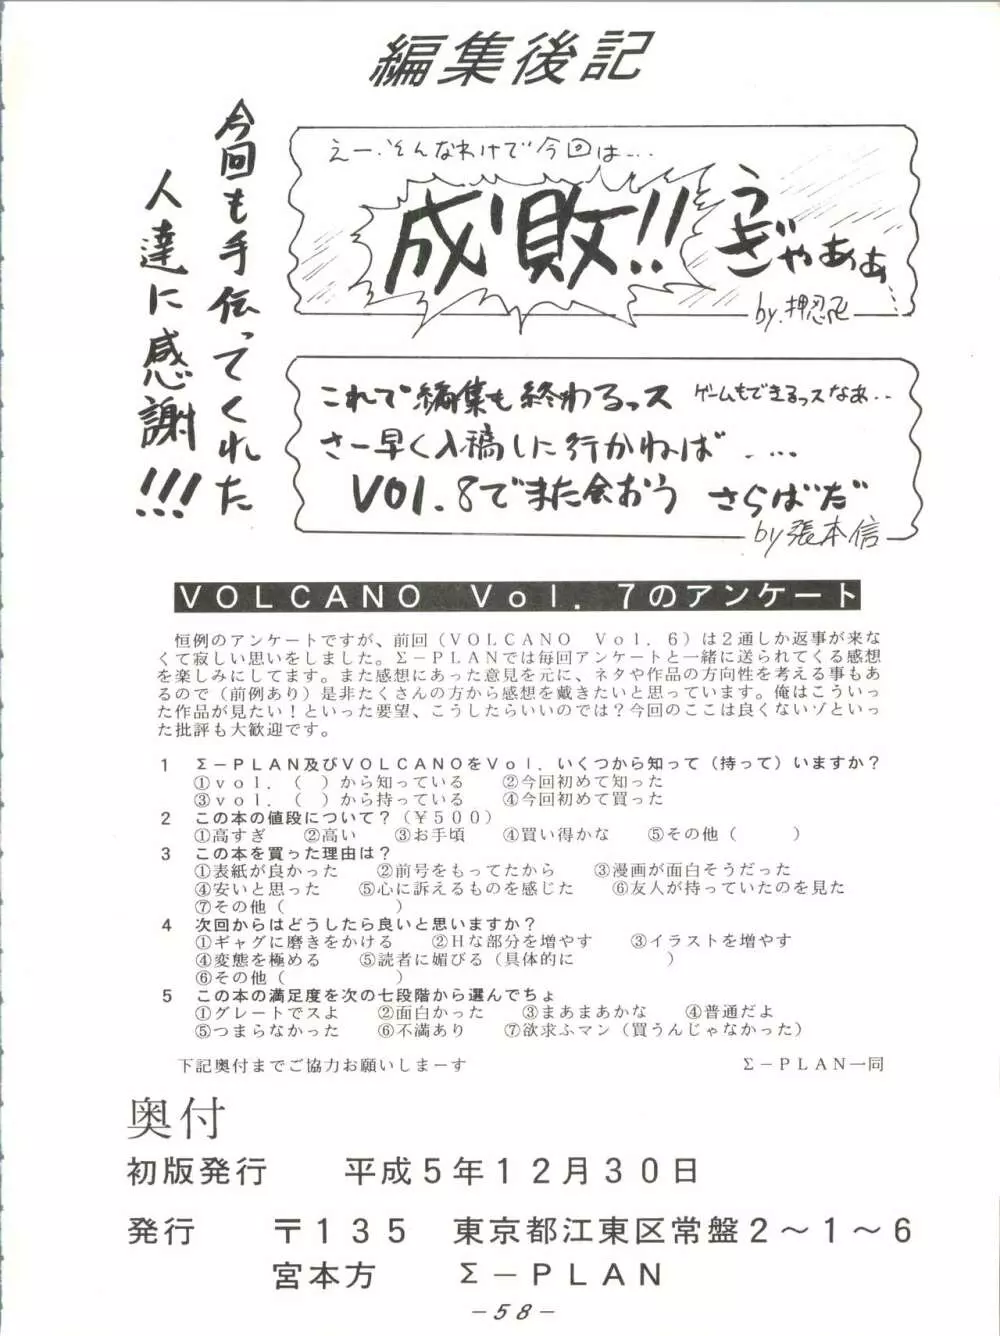 編集後記
今回も手伝ってくれた
人達に感謝!!!
えー、そんなわけで今回は…
成敗!!
うぎゃあぁ…
by.押忍
これで編集も終わるっス ゲームもできるっスなあ..
さー早く入稿しに行かねば ....
VOl.8でまた会おう さらばだ
by 張本信
VOLCANO Vol.7のアンケート
恒例のアンケートですが、前回(VOLCANO Vol.6)は2通しか返事が来な
くて寂しい思いをしました。Σ-PLANでは毎回アンケートと一緒に送られてくる感想
を楽しみにしてます。また感想にあった意見を元に、ネタや作品の方向性を考える事もあ
るので(前例あり)是非たくさんの方から感想を戴きたいと思っています。俺はこういっ
た作品が見たい!といった要望、こうしたらいいのでは?今回のここは良くないゾといっ
た批評も大歓迎です。
1 Σ-PLAN及びVOLCANOをVol.いくつから知って(持って)いますか?
①vol.( )から知っている ②今回初めて知った
③vol.( )から持っている ④今回初めて買った
2 この本の値段について?(¥500)
①高すぎ ②高い ③お手頃 ④買い得かな ⑤その他( )
3 この本を買った理由は?
①表紙が良かった ②前号をもってたから ③漫画が面白そうだった
④安いと思った ⑤心に訴えるものを感じた ⑥友人が持っていたのを見た
⑦その他( )
4 次回からはどうしたら良いと思いますか?
①ギャグに磨きをかける ②Hな部分を増やす ③イラストを増やす
④変態を極める ⑤読者に媚びる(具体的に )
⑥その他( )
5 この本の満足度を次の七段階から選んでちょ
①グレートでスよ ②面白かった ③まあまあかな ④普通だよ
⑤つまらなかった ⑥不満あり ⑦欲求ふマン(買うんじゃなかった)
下記奥付までご協力お願いしまーす Σ-PLAN一同
奥付
初版発行 平成5年12月30日
発行 〒135 東京都江東区常盤2~1~6
宮本方 Σ-PLAN
-58-